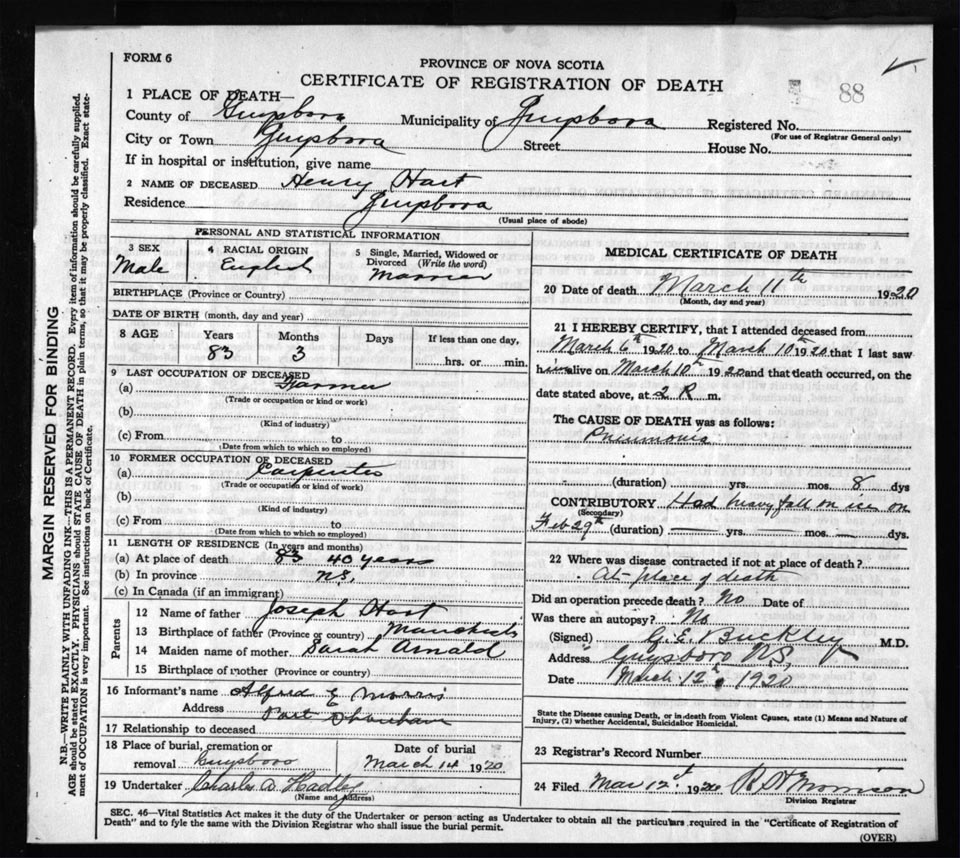 FORM 6
PROVINCE OF NOVA SCOTIA
CERTIFICATE OF REGISTRATION OF DEATH
88
1 PLACE OF DEATH—
County of Guysboro Municipality of Guysboro Registered No.
(For use of Registrar General only)
City or Town Guysboro Street House No.
If in hospital or institution, give name
2 NAME OF DECEASED Henry Hart
Residence Guysboro
(Usual place of abode)
PERSONAL AND STATISTICAL INFORMATION
3 SEX 4 RACIAL ORIGIN 5 Single, Married, Widowed or
Divorced (Write the word)
Male English
BIRTHPLACE (Province or Country)
DATE OF BIRTH (month, day and year)
8 AGE Years Months Days If less than one day,
83 3 hrs. or min.
9 LAST OCCUPATION OF DECEASED
(a) Farmer
(Trade or occupation or kind or work)
(b)
(Kind of industry)
(c) From to
(Date from which to which so employed)
10 FORMER OCCUPATION OF DECEASED
(a) Carpenter
(Trade or occupation or kind of work)
(b)
(Kind of industry)
(c) From to
(Date from which to which so employed)
11 LENGTH OF RESIDENCE (In years and months)
(a) At place of death 83 40 years
(b) In province N.S.
(c) In Canada (if an immigrant)
Parents
12 Name of father Joseph Hart
13 Birthplace of father (Province or country)
14 Maiden name of mother Sarah Arnald
15 Birthplace of mother (Province or country)
16 Informant's name Alfred E Morris
Address Port
17 Relationship to deceased
18 Place of burial, cremation or Date of burial
removal Guysboro March 14 1920
19 Undertaker Charles A Hadley
(Name and address)
MEDICAL CERTIFICATE OF DEATH
20 Date of death March 11th 1920
(Month, day and year)
21 I HEREBY CERTIFY, that I attended deceased from
March 6th 1920 to March 10th 1920 that I last saw
him alive on March 10th 1920 and that death occurred, on the
date stated above, at 2 m.
The CAUSE OF DEATH was as follows:
Pneumonia
(duration) yrs. mos. 8 dys
CONTRIBUTORY Had heavy fall on ice on
(Secondary)
Feb 29th (duration) — yrs. — mos. — dys.
22 Where was disease contracted if not at place of death?
At place of death
Did an operation precede death? No Date of
Was there an autopsy? No
(Signed) G. E. Buckley M.D.
Address Guysboro N.S.
Date March 12th 1920
State the Disease causing Death, or in death from Violent Causes, state (1) Means and Nature of
Injury, (2) whether Accidental, Suicidal or Homicidal.
23 Registrar's Record Number
24 Filed Mar 12 1920 R H Morrison
Division Registrar
SEC. 46—Vital Statistics Act makes it the duty of the Undertaker or person acting as Undertaker to obtain all the particulars required in the "Certificate of Registration of
Death" and to fyle the same with the Division Registrar who shall issue the burial permit.
(OVER)
MARGIN RESERVED FOR BINDING
N.B.—WRITE PLAINLY WITH UNFADING INK—THIS IS A PERMANENT RECORD. Every item of information should be carefully supplied.
AGE should be stated EXACTLY. PHYSICIANS should STATE CAUSE OF DEATH in plain terms, so that it may be properly classified. Exact state-
ment of OCCUPATION is very important. See instructions on back of Certificate.